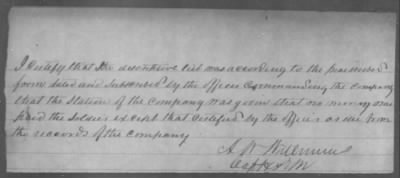 I Certify that the descriptive list was according to the prescribed
form dated and Subscribed by the officer Commanding the company
that the Station of the company was given that no money was
paid the Soldier except that Certified by the officer or as from
the records of the company
A
Capt